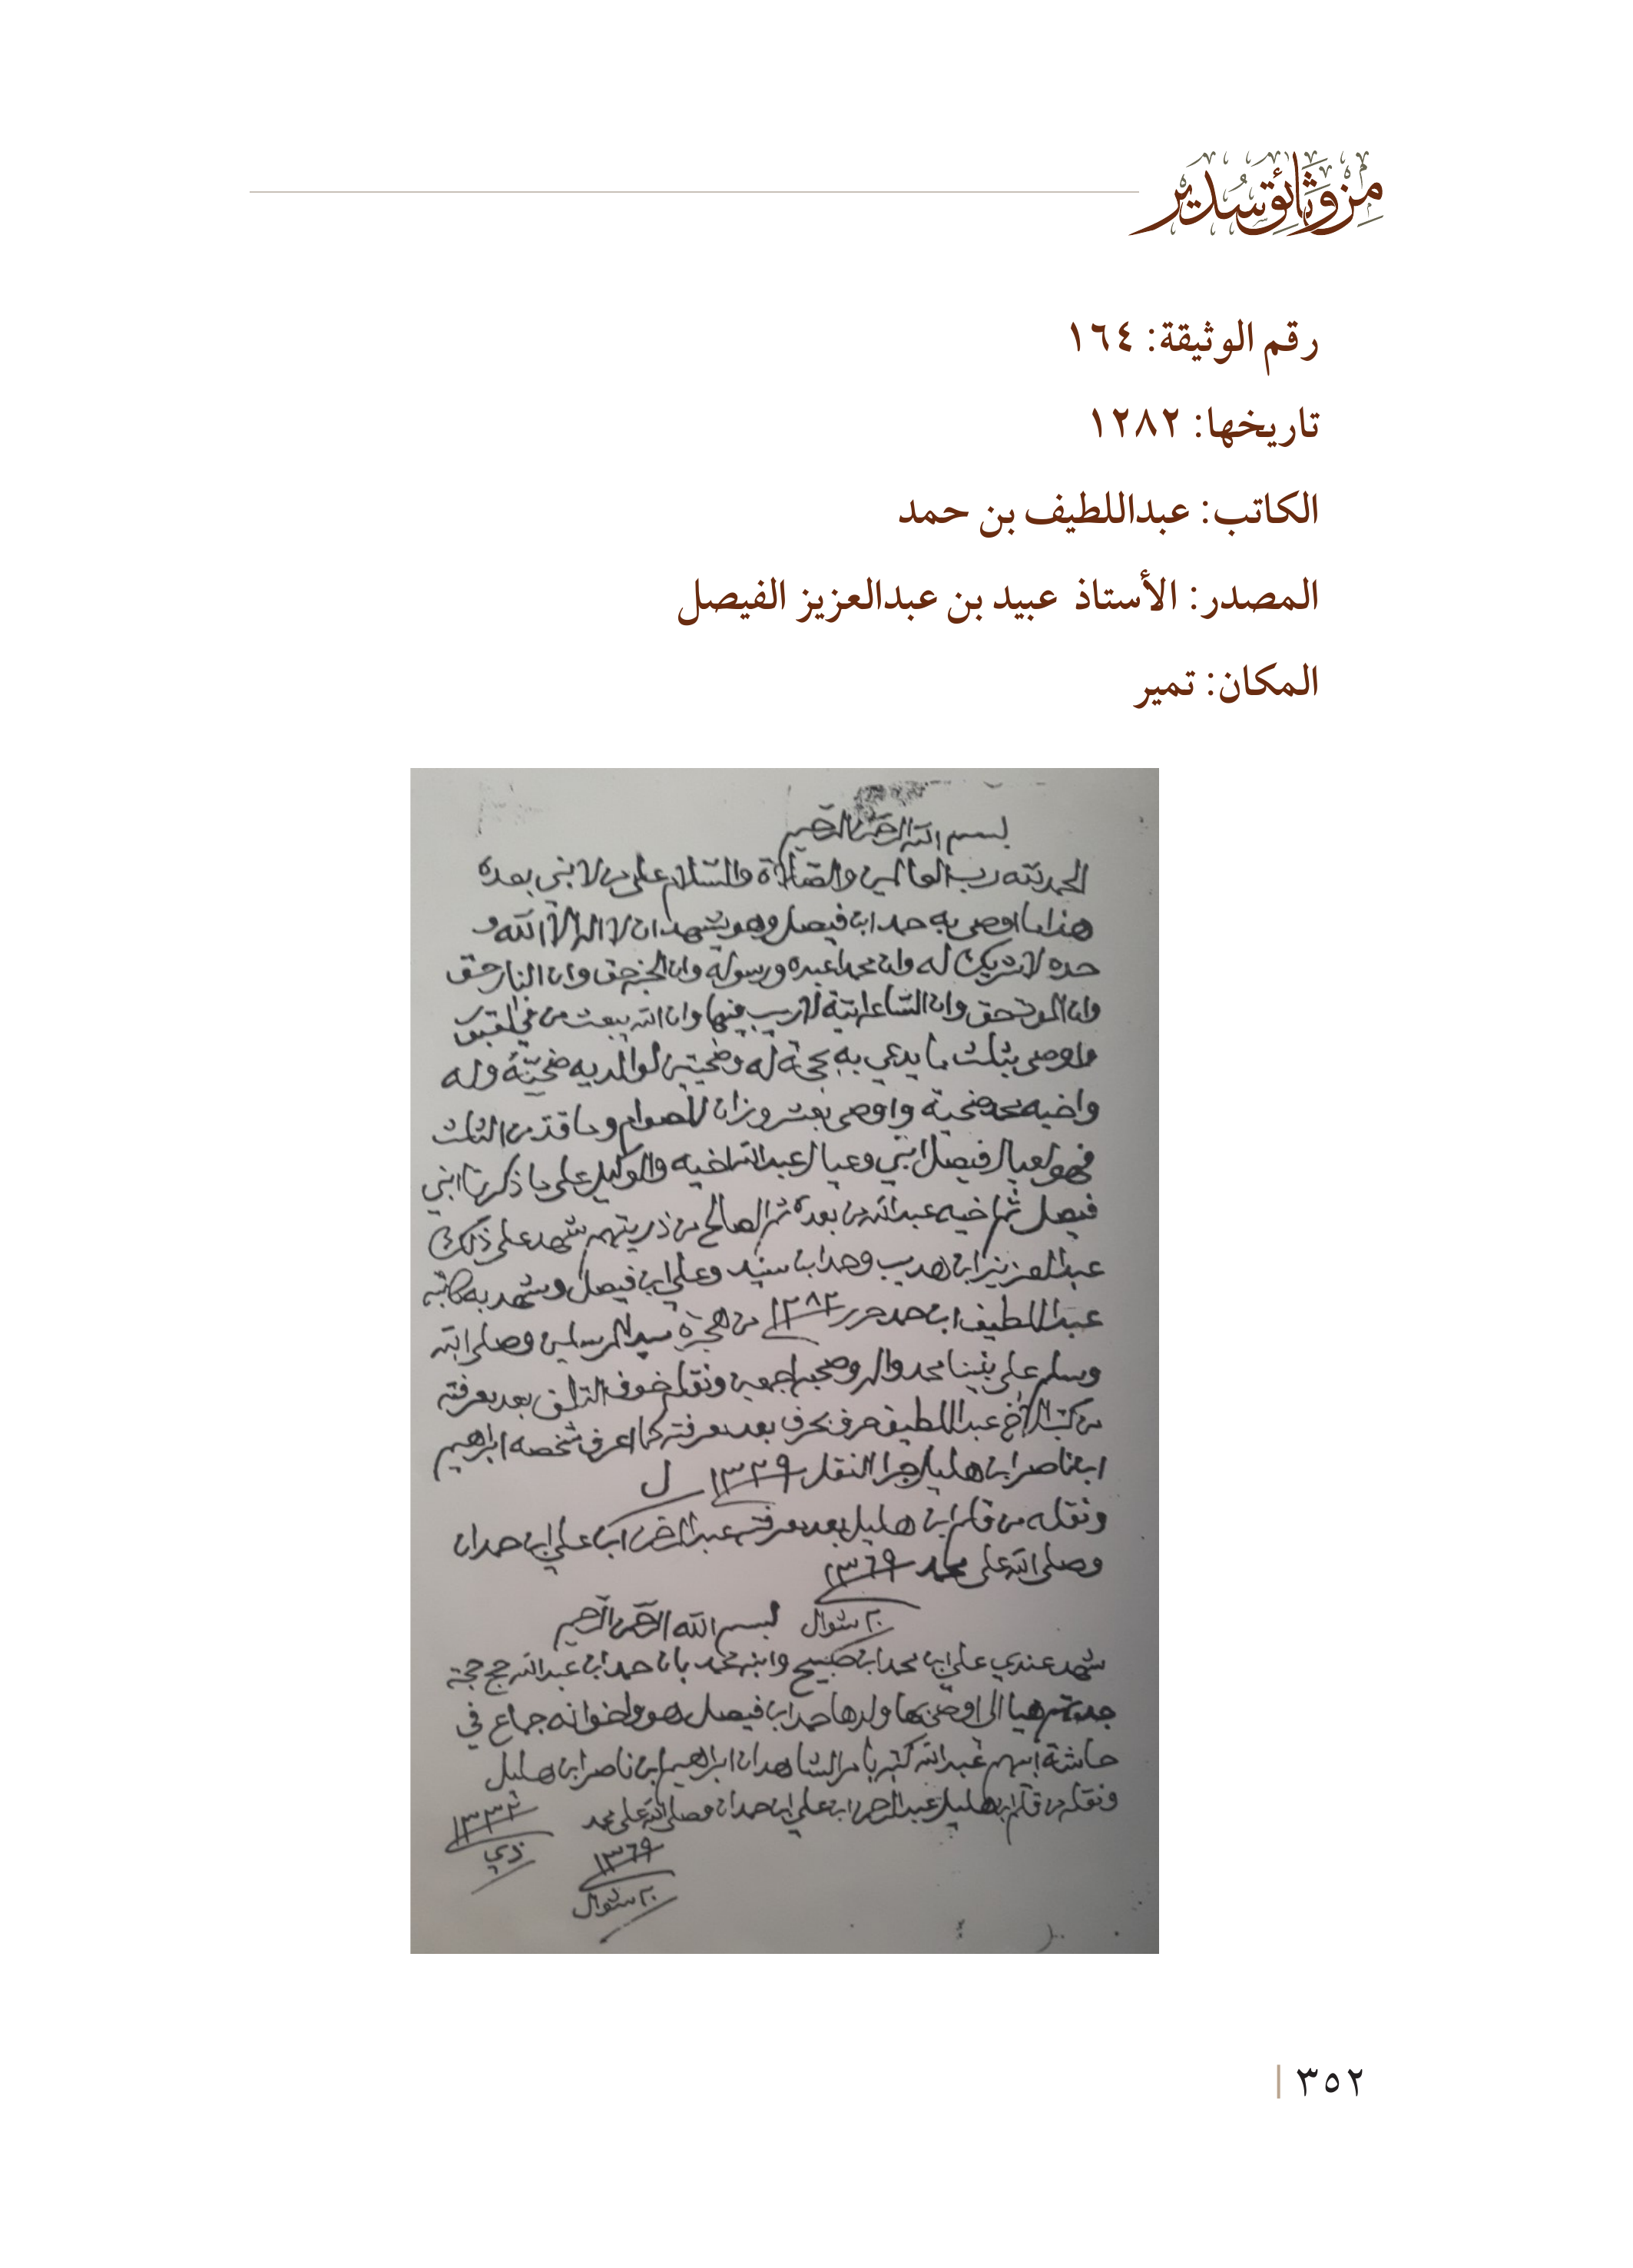 من وثائق سدير
رقم الوثيقة: ١٦٤
تاريخها: ١٢٨٢
الكاتب: عبداللطيف بن حمد
المصدر: الأستاذ عبيد بن عبدالعزيز الفيصل
المكان: تمير
بسم الله الرحمن الرحيم
الحمد لله رب العالمين والصلاة والسلام على من لا نبي بعده
هذا ما اوصى به حمد ابن فيصل وهو يشهد ان لا اله الا الله و
حده لا شريك له وان محمدا عبده ورسوله وان الجنة حق وان النار حق
وان الموت حق وان الساعة اتية لا ريب فيها وان الله يبعث من في القبور
واوصى بثلث ما يدعي به بحجة له وضحيتين لوالديه ضحية وله
واخيه محمد ضحية واوصى بعشر وزان للصوام وما قد من الثلث
فهو لعيال فيصل ابني وعيال عبدالله اخيه والوكيل على ما ذكرنا ابني
فيصل ثم اخيه عبدالله من بعده ثم الصالح من ذريتهم شهد على ذلك
عبدالعزيز ابن هديب وحمد ابن سنيد وعلي ابن فيصل وشهد به كاتبه
عبداللطيف ابن حمد حرر ١٢٨٢ من هجرة سيد المرسلين وصلى الله
وسلم على نبينا محمد واله وصحبه اجمعين ونقله خوف التلف بعد معرفته
من كتب الاخ عبداللطيف حرف بحرف بعد معرفته كما اعرف شخصه ابراهيم
ابن ناصر ابن هليل جرا النقل ١٣٢٩ ل
ونقله من قلم ابن هليل بعد معرفته عبدالرحمن ابن علي ابن حمدان
وصلى الله على محمد ١٣٦٩
٢٠ شوال
بسم الله الرحمن الرحيم
شهد عندي علي ابن محمد ابن صبيح وابنه محمد بان حمد ابن عبدالله حج حجة
جدتهم هيا الى اوصى بها ولدها حمد ابن فيصل هو واخوانه جماع في
حاشة ابيهم عبدالله كتبه بامر الشاهدان ابراهيم ابن ناصر ابن هليل
ونقله من قلم ابن هليل عبدالرحمن ابن علي ابن حمدان وصلى الله على محمد
١٣٣٢
١٣٦٩
٢٠ شوال
٣٥٢